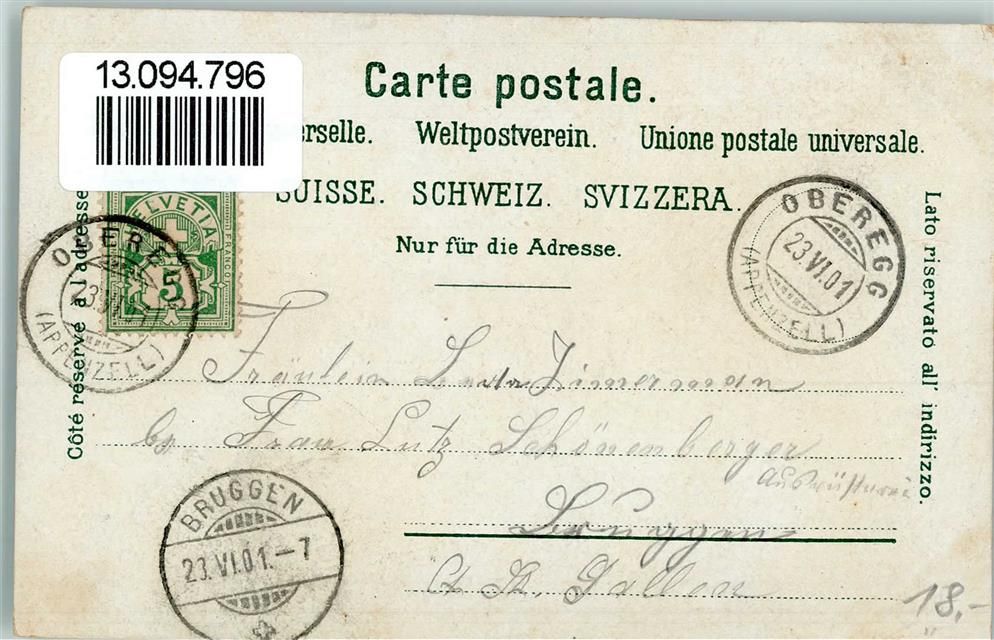 13.094.796
Carte postale.
erselle. Weltpostverein. Unione postale universale.
SUISSE. SCHWEIZ. SVIZZERA.
Nur für die Adresse.
Côté reservé à l'adresse
Lato riservato all' indirizzo.
HELVETIA
FRANCO
5
OBERE
23.VI.01
(APPENZELL)
OBEREGG
23.VI.01
(APPENZELL)
Fräulein Zimerman
bp Frau Lutz Schönenberger
Ausrüsterei
Bruggen
Ct St. Gallen
BRUGGEN
23.VI.01.-7
18.-